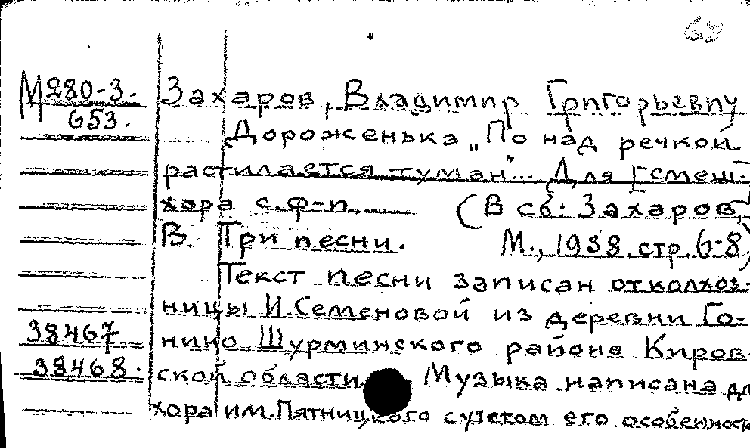 68
М280-3. Захаров, Владимир Григорьевич
653. Дороженька „По над речкой
растилается туман"... Для смеш.
хора с ф-п. (В сб: Захаров,
В. Три песни. М., 1938, стр. 6-8)
Текст песни записан от колхоз-
ницы И. Семеновой из деревни Го-
38467 нино Шурминского района Киров-
38468. ской области. Музыка написана дл
хора им. Пятницкого с учетом его особеннос